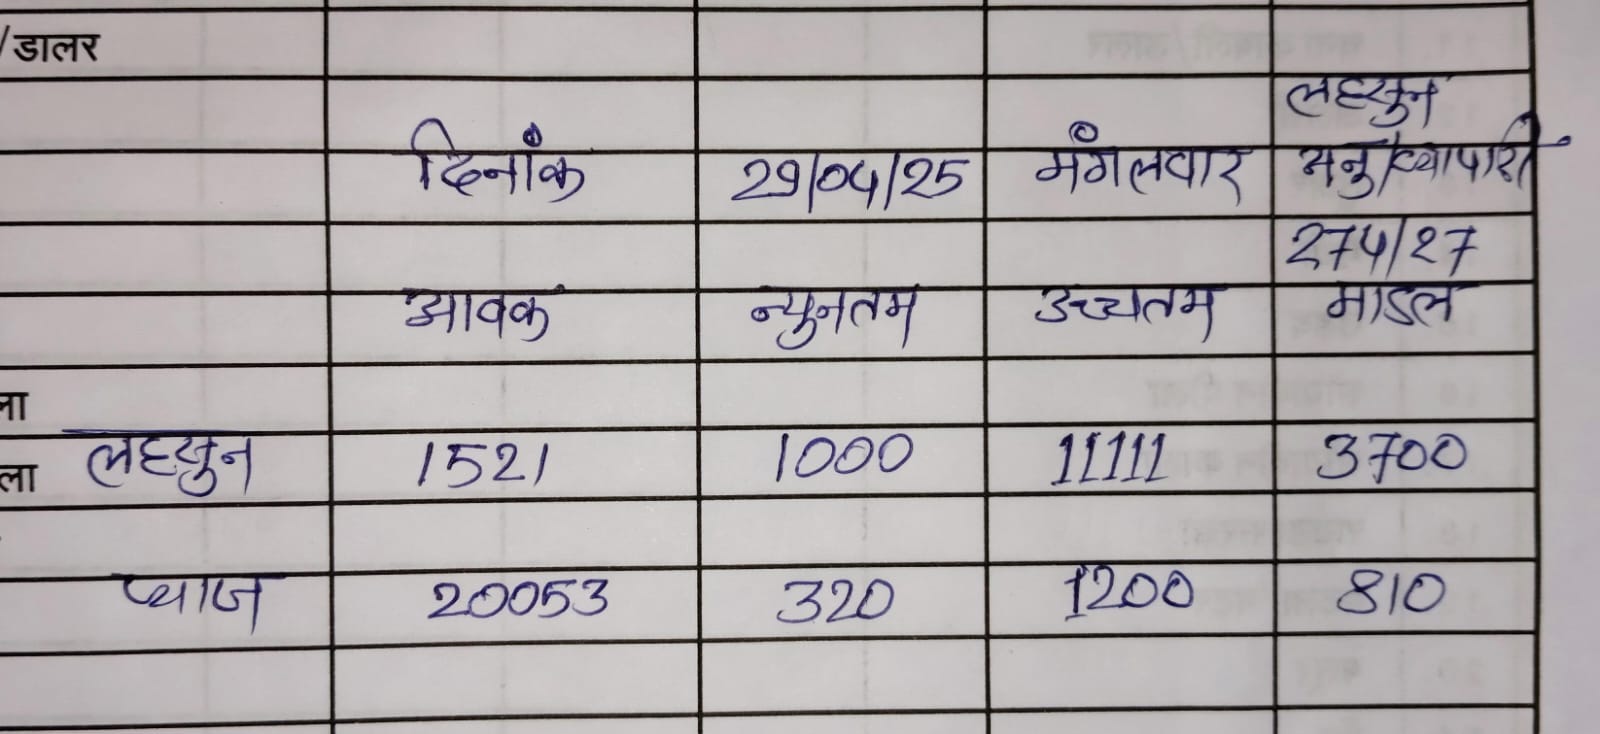 /डालर
लहसुन
दिनांक 29/04/25 मंगलवार अनु/व्यापारी
274/27
आवक न्युनतम उच्चतम माडल
ला
लहसुन 1521 1000 11111 3700
प्याज 20053 320 1200 810